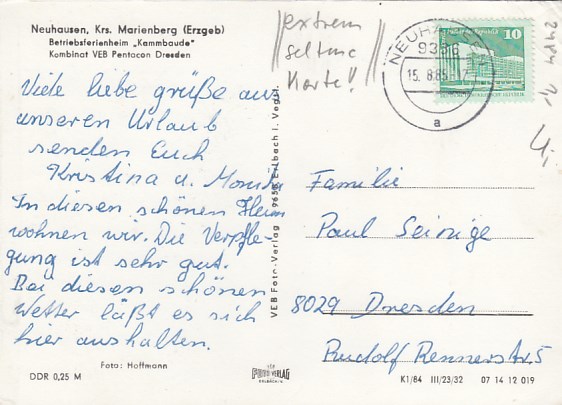 Neuhausen, Krs. Marienberg (Erzgeb)
Betriebsferienheim „Kammbaude"
Kombinat VEB Pentacon Dresden
extrem
seltene
Karte!
NEUHAUSEN
9336
15. 8. 85
a
10
2484
4,-
Viele liebe grüße aus
unseren Urlaub
senden Euch
Kristina u. Monika
In diesen schönen Heim
wohnen wir. Die Verpfle-
gung ist sehr gut.
Bei diesen schönen
Wetter läßt es sich
hier aushalten.
VEB Foto-Verlag 9659 Erlbach i. Vogtl.
Familie
Paul
8029 Dresden
Rudolf Rennerstr. 5
Foto: Hoffmann
DDR 0,25 M
FOTO VERLAG
ERLBACH
K1/84 III/23/32 07 14 12 019